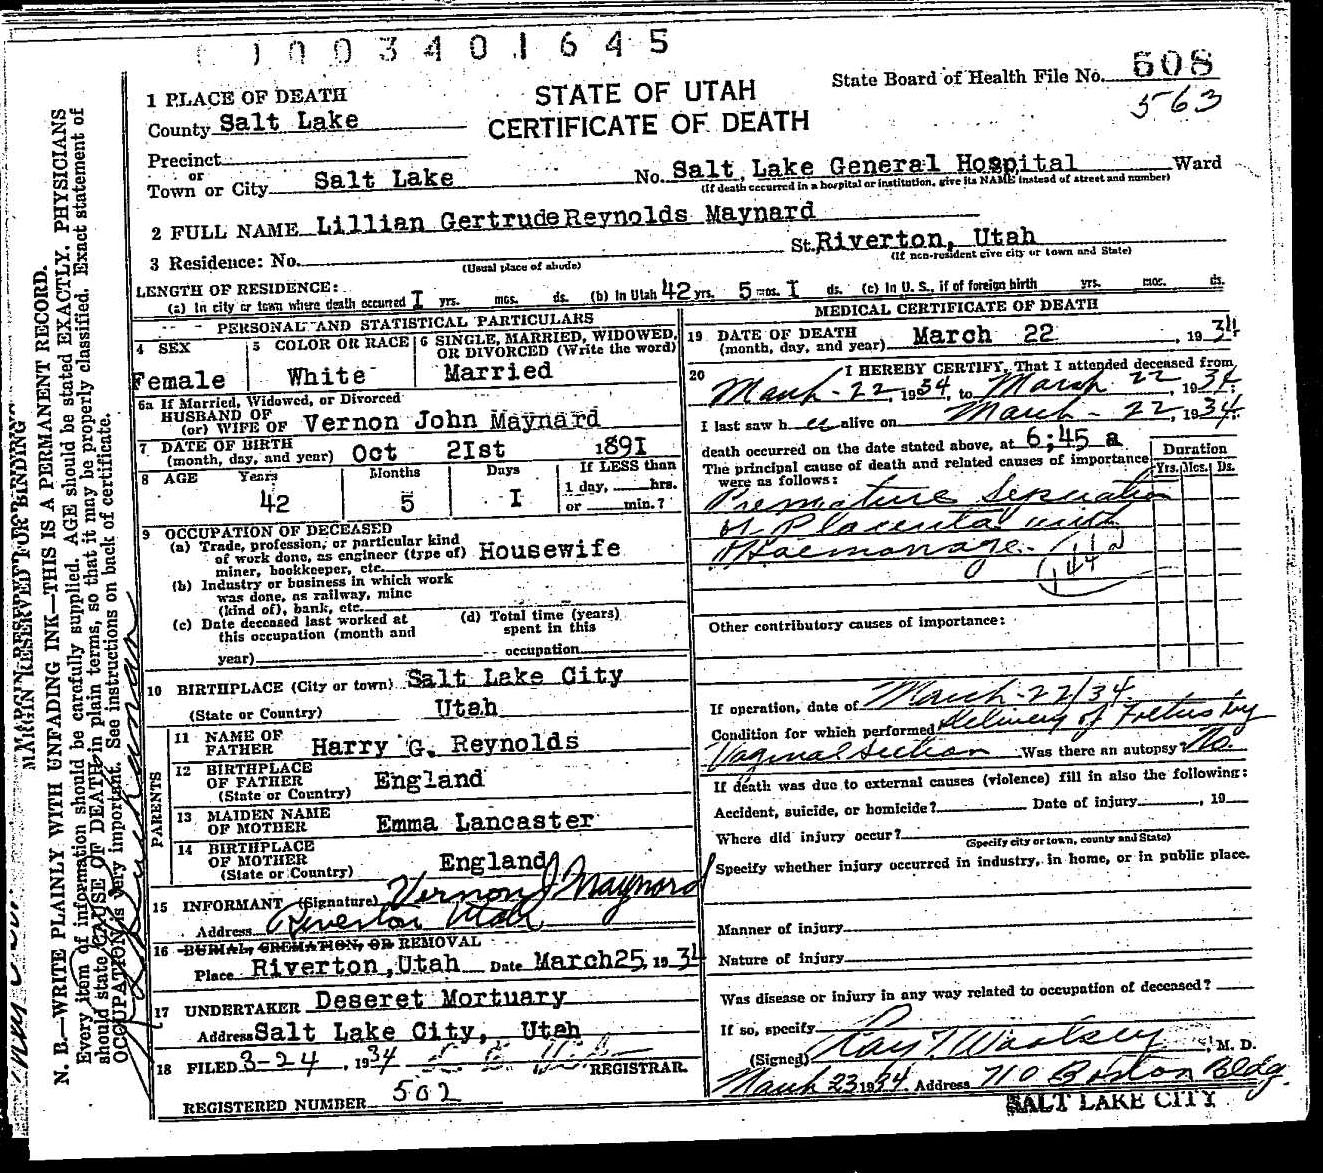 1003401645
State Board of Health File No. 508
563
STATE OF UTAH
CERTIFICATE OF DEATH
1 PLACE OF DEATH
County Salt Lake
Precinct
or
Town or City Salt Lake No. Salt Lake General Hospital Ward
(If death occurred in a hospital or institution, give its NAME instead of street and number)
2 FULL NAME Lillian Gertrude Reynolds Maynard
3 Residence: No. St. Riverton, Utah
(Usual place of abode) (If non-resident give city or town and State)
LENGTH OF RESIDENCE:
(a) In city or town where death occurred I yrs. mos. ds. (b) In Utah 42 yrs. 5 mos. I ds. (c) In U. S., if of foreign birth yrs. mos. ds.
PERSONAL AND STATISTICAL PARTICULARS
4 SEX
Female
5 COLOR OR RACE
White
6 SINGLE, MARRIED, WIDOWED,
OR DIVORCED (Write the word)
Married
6a If Married, Widowed, or Divorced
HUSBAND OF
(or) WIFE OF Vernon John Maynard
7 DATE OF BIRTH
(month, day, and year) Oct 2Ist 189I
8 AGE Years Months Days If LESS than
1 day, hrs.
42 5 I or min.?
9 OCCUPATION OF DECEASED
(a) Trade, profession, or particular kind
of work done, as engineer (type of) Housewife
miner, bookkeeper, etc.
(b) Industry or business in which work
was done, as railway, mine
(kind of), bank, etc.
(c) Date deceased last worked at
this occupation (month and
year)
(d) Total time (years)
spent in this
occupation
10 BIRTHPLACE (City or town) Salt Lake City
(State or Country) Utah
PARENTS
11 NAME OF
FATHER Harry G. Reynolds
12 BIRTHPLACE
OF FATHER England
(State or Country)
13 MAIDEN NAME
OF MOTHER Emma Lancaster
14 BIRTHPLACE
OF MOTHER England
(State or Country)
15 INFORMANT (Signature) Vernon J Maynard
Address Riverton Utah
16 BURIAL, CREMATION, OR REMOVAL
Place Riverton, Utah Date March 25, 1934
17 UNDERTAKER Deseret Mortuary
Address Salt Lake City, Utah
18 FILED 3-24, 1934 REGISTRAR.
REGISTERED NUMBER 502
MEDICAL CERTIFICATE OF DEATH
19 DATE OF DEATH
(month, day, and year) March 22, 1934
20 I HEREBY CERTIFY, That I attended deceased from
March - 22, 1934, to March 22, 1934.
I last saw her alive on March - 22, 1934.
death occurred on the date stated above, at 6;45 a
The principal cause of death and related causes of importance
were as follows:
Duration
Yrs. Mos. Ds.
Premature Separation
of Placenta with
Haemorrage.
144
Other contributory causes of importance:
If operation, date of March - 22/34.
Condition for which performed Delivery of Foetus by
Vaginal Section Was there an autopsy? No.
If death was due to external causes (violence) fill in also the following:
Accident, suicide, or homicide? Date of injury , 19
Where did injury occur?
(Specify city or town, county and State)
Specify whether injury occurred in industry, in home, or in public place.
Manner of injury
Nature of injury
Was disease or injury in any way related to occupation of deceased?
If so, specify
(Signed) Ray T. Woolsey, M. D.
March 23 1934. Address 710 Boston Bldg.
SALT LAKE CITY
MARGIN RESERVED FOR BINDING
N. B.—WRITE PLAINLY WITH UNFADING INK—THIS IS A PERMANENT RECORD.
Every item of information should be carefully supplied. AGE should be stated EXACTLY. PHYSICIANS
should state CAUSE OF DEATH in plain terms, so that it may be properly classified. Exact statement of
OCCUPATION is very important. See instructions on back of certificate.